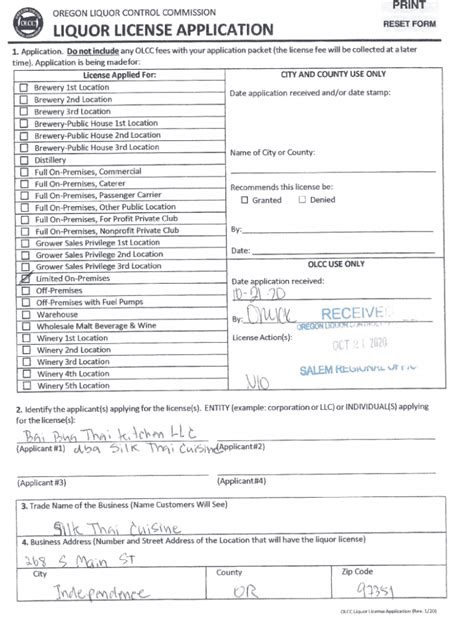 PRINT
RESET FORM
OLCC
OREGON LIQUOR CONTROL COMMISSION
LIQUOR LICENSE APPLICATION
1. Application. Do not include any OLCC fees with your application packet (the license fee will be collected at a later
time). Application is being made for:
License Applied For:
Brewery 1st Location
Brewery 2nd Location
Brewery 3rd Location
Brewery-Public House 1st Location
Brewery-Public House 2nd Location
Brewery-Public House 3rd Location
Distillery
Full On-Premises, Commercial
Full On-Premises, Caterer
Full On-Premises, Passenger Carrier
Full On-Premises, Other Public Location
Full On-Premises, For Profit Private Club
Full On-Premises, Nonprofit Private Club
Grower Sales Privilege 1st Location
Grower Sales Privilege 2nd Location
Grower Sales Privilege 3rd Location
Limited On-Premises
Off-Premises
Off-Premises with Fuel Pumps
Warehouse
Wholesale Malt Beverage & Wine
Winery 1st Location
Winery 2nd Location
Winery 3rd Location
Winery 4th Location
Winery 5th Location
CITY AND COUNTY USE ONLY
Date application received and/or date stamp:
Name of City or County:
Recommends this license be:
Granted Denied
By:
Date:
OLCC USE ONLY
Date application received:
10-21-20
By:
RECEIVE
OREGON LIQUOR
License Action(s):
OCT 21 2020
SALEM REGIONAL
N/O
2. Identify the applicant(s) applying for the license(s). ENTITY (example: corporation or LLC) or INDIVIDUAL(S) applying
for the license(s):
Bai Bua Thai Kitchen LLC
(Applicant #1) dba Silk Thai Cuisine (Applicant#2)
(Applicant #3) (Applicant #4)
3. Trade Name of the Business (Name Customers Will See)
Silk Thai Cuisine
4. Business Address (Number and Street Address of the Location that will have the liquor license)
268 S Main ST
City County Zip Code
Independence OR 97351
OLCC Liquor License Application (Rev. 1/20)